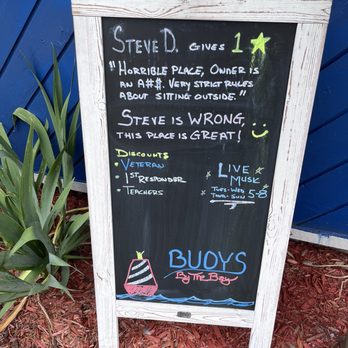 STEVE D. GIVES 1 ★
"HORRIBLE PLACE, OWNER IS
AN A#$. VERY STRICT RULES
ABOUT SITTING OUTSIDE."
STEVE IS WRONG,
THIS PLACE IS GREAT!
DISCOUNTS
• VETERAN
• 1ST RESPONDER
• TEACHERS
LIVE
MUSK
TUES-WED
THUR-SUN 5-8
BUOYS
By The Bay